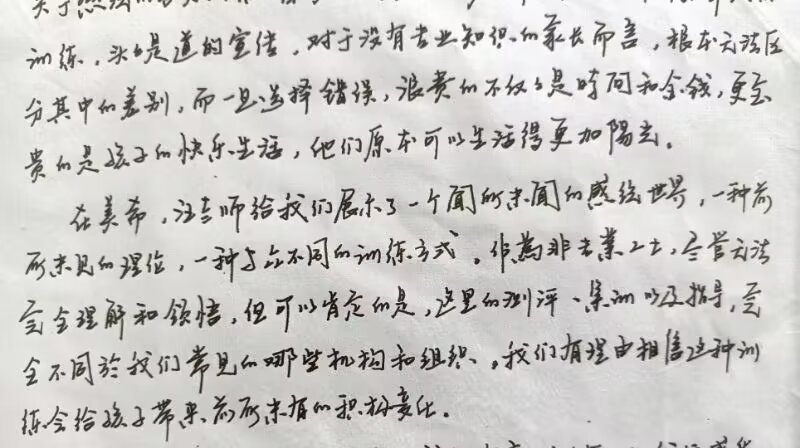 训练，头头是道的宣传，对于没有专业知识的家长而言，根本无法区
分其中的差别，而一旦选择错误，浪费的不仅仅是時间和金钱，更宝
贵的是孩子的快乐生活，他们原本可以生活得更加陽光。
在美希，汪老师给我们展示了一个闻所未闻的感统世界，一种前
所未见的理论，一种与众不同的训练方式。作為非专業人士，尽管无法
完全理解和领悟，但可以肯定的是，这里的测评、集训以及指导，完
全不同於我们常见的哪些机构和组织，我们有理由相信这种训
练会给孩子带来前所未有的积极变化。